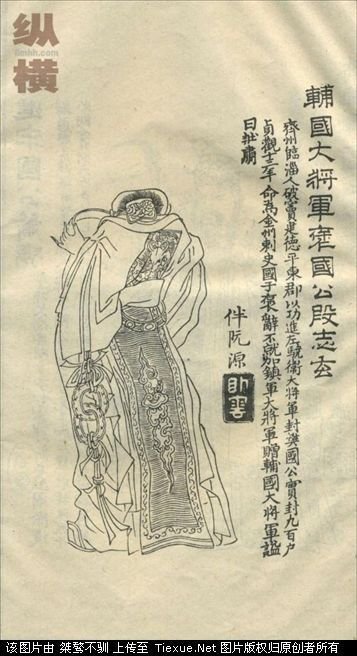 纵横
輔國大將軍褒國公段志玄
齊州臨淄人破竇建德平東郡以功進左驍衛大將軍封樊國公實封九百户
貞觀十二年命為金州刺史國于褒辭不就加鎮軍大將軍贈輔國大將軍諡
曰壯肅
伴阮源
该图片由 桀骜不驯 上传至 Tiexue.Net 图片版权归原创者所有